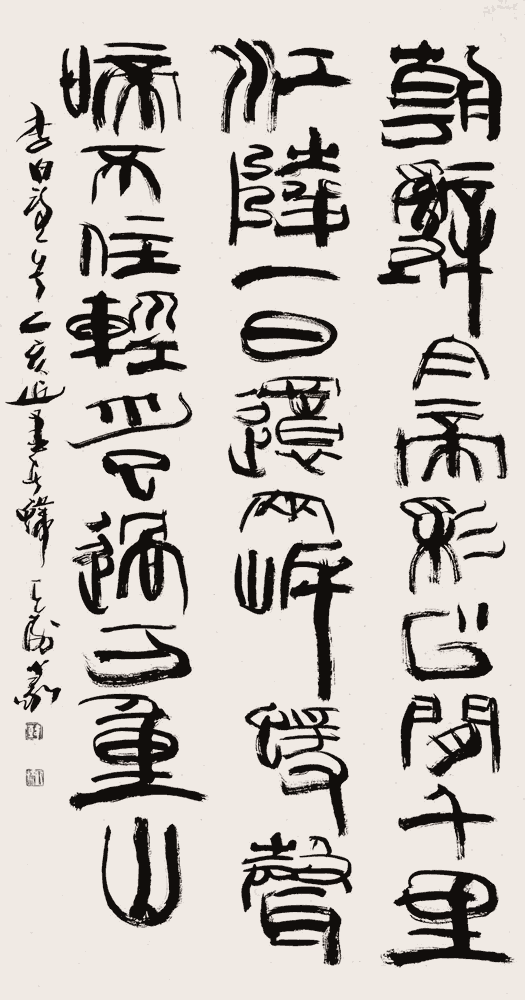 朝辭白帝彩云間千里
江陵一日還兩岸猨聲
啼不住輕舟已過万重山
李白詩 乙亥 書